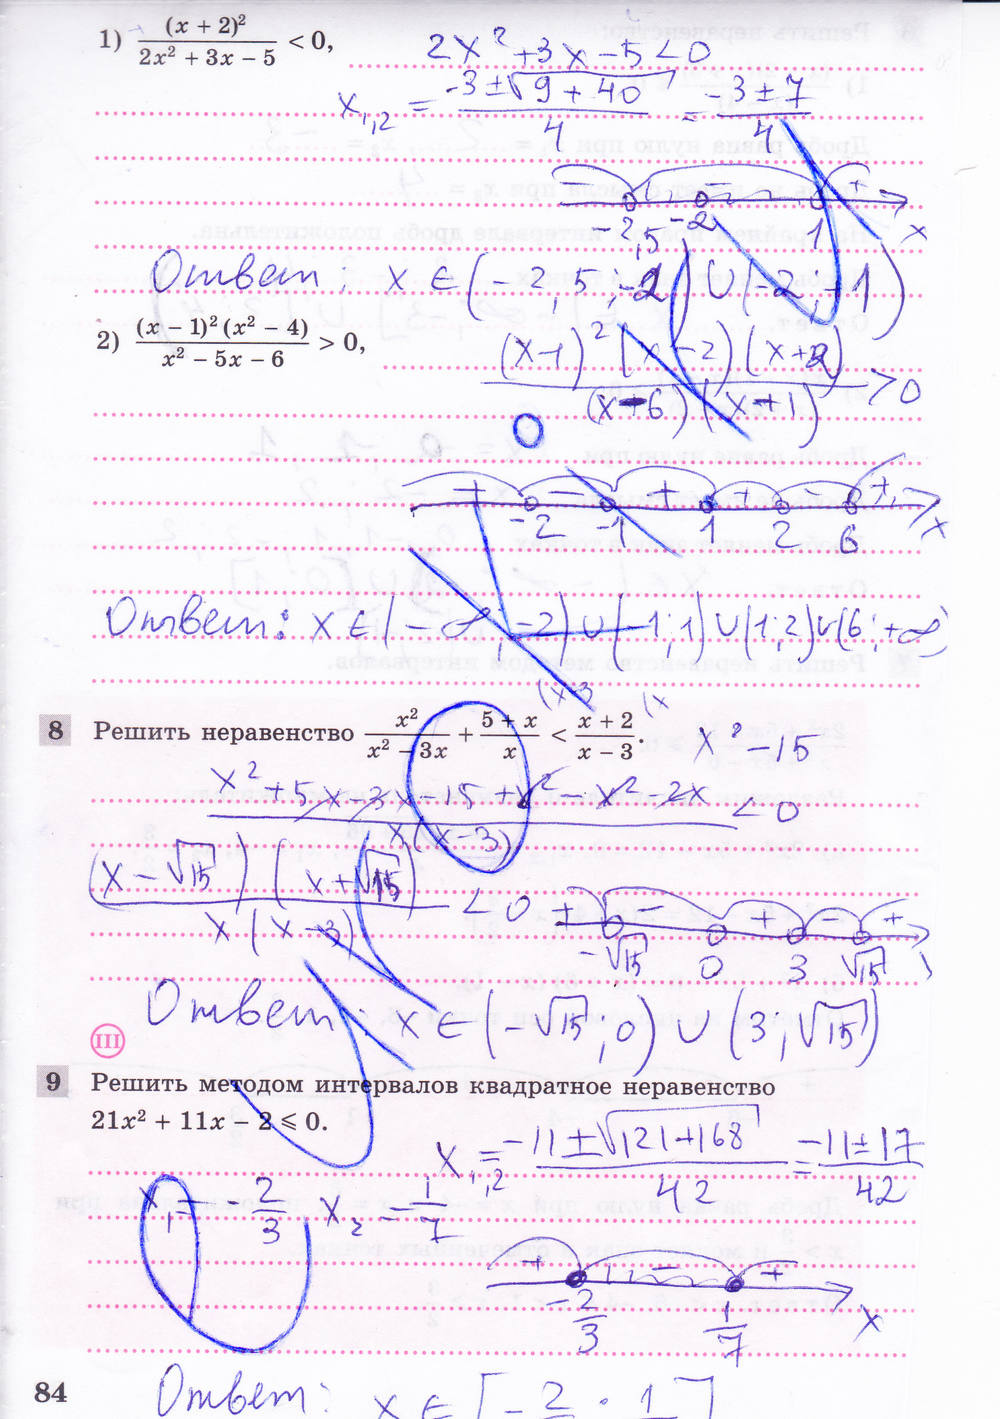 1) (x + 2)² / (2x² + 3x − 5) < 0,
2x² + 3x − 5 < 0
x₁,₂ = (−3 ± √(9 + 40)) / 4 = (−3 ± 7) / 4
−2,5 −2 1 x
Ответ: x ∈ (−2,5; −2) ∪ (−2; 1)
2) (x − 1)² (x² − 4) / (x² − 5x − 6) > 0,
(x − 1)² (x − 2)(x + 2) / ((x − 6)(x + 1)) > 0
+ − + + − +
−2 −1 1 2 6 x
Ответ: x ∈ (−∞; −2) ∪ (−1; 1) ∪ (1; 2) ∪ (6; +∞)
8 Решить неравенство x² / (x² − 3x) + (5 + x) / x < (x + 2) / (x − 3).
x² − 15
(x² + 5x − 3x − 15 + x² − x² − 2x) / (x(x − 3)) < 0
(x − √15)(x + √15) / (x(x − 3)) < 0
+ − + − +
−√15 0 3 √15
Ответ: x ∈ (−√15; 0) ∪ (3; √15)
III
9 Решить методом интервалов квадратное неравенство
21x² + 11x − 2 ⩽ 0.
x₁,₂ = (−11 ± √(121 + 168)) / 42 = (−11 ± 17) / 42
x₁ = −2/3 x₂ = 1/7
+ − +
−2/3 1/7 x
84
Ответ: x ∈ [−2/3; 1